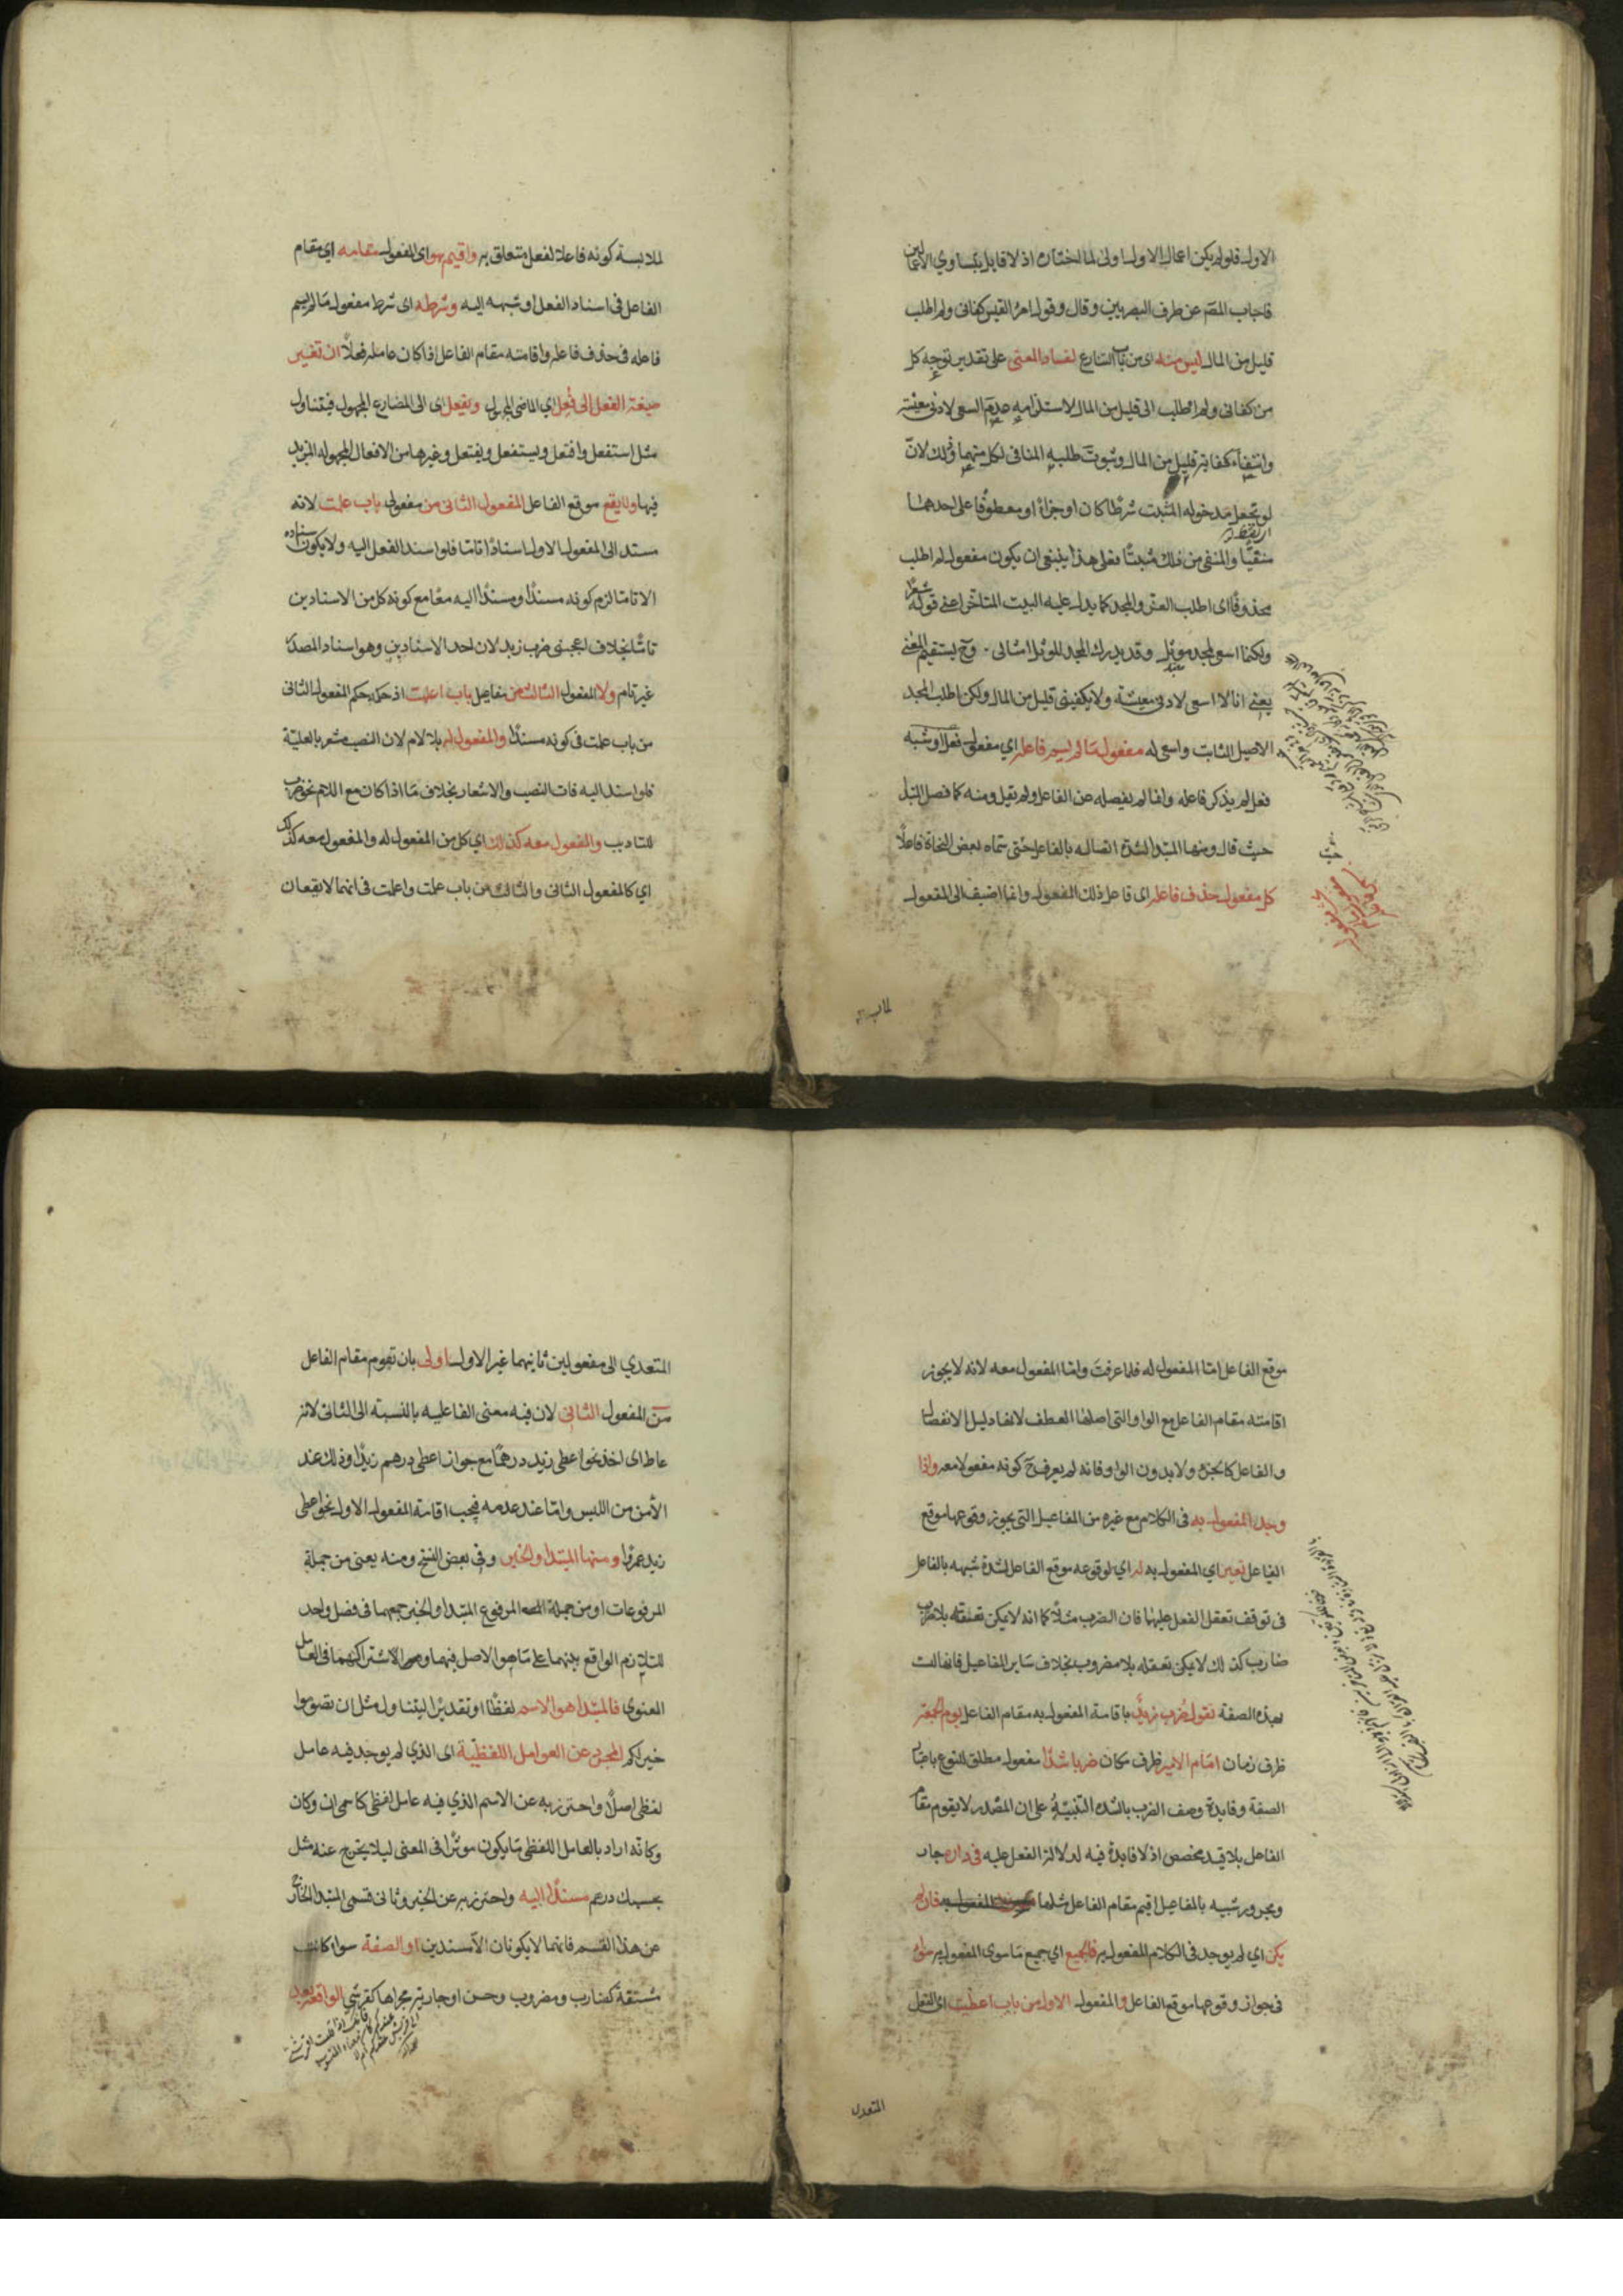 الاول فلو لم يكن اعمال الاول اولى لما اختاره اذ لا قايل بتساوي الاعمالين
فاجاب المصّ عن طرف البصريين وقال وقول امرُ القيس كفانى ولم اطلب
قليل من المال ليس منه اى من باب التنازع لفساد المعنى على تقدير توجه كل
من كفانى ولم اطلب الى قليل من المال لاستلزامه عدم السعى لادنى معيشة
وانتفاء كفاية قليل من المال وثبوت طلبه المنافى لكل منهما وذلك لانّ
لو تجعل مدخوله المثبت شرطًا كان او جزاءً او معطوفًا على احدهما
منفيًّا والمنفى من ذلك مثبتًا فعلى هذا ينبغى ان يكون مفعول لم اطلب
محذوفًا اى اطلب العز والمجد كما يدل عليه البيت المتاخر اعنى قوله شعرًا
ولكنما اسعى لمجد موثل وقد يدرك المجد الموثل امثالى وح يستقيم المعنى
يعنى انا لا اسعى لادنى معيشة ولا يكفينى قليل من المال ولكن اطلب المجد
الاصيل الثابت واسعى له مفعول ما لم يسم فاعله اي مفعول فعل او شبه
فعل لم يذكر فاعله وانما لم يفصله عن الفاعل ولم يقل ومنه كما فصل المبتدأ
حيث قال ومنها المبتدا لشدة اتصاله بالفاعل حتى سماه بعض النحاة فاعلًا
كل مفعول حذف فاعله اى فاعل ذلك المفعول وانما اضيف الى المفعول
لملابسة كونه فاعلا لفعل متعلق به واقيم هو اى المفعول مقامه اي مقام
الفاعل فى اسناد الفعل او شبهه اليه وشرطه اى شرط مفعول ما لم يسم
فاعله فى حذف فاعله واقامته مقام الفاعل اذا كان عامله فعلًا ان تغير
صيغة الفعل الى فُعِل اي الماضى المجهول ويفعل اى الى المضارع المجهول فيتناول
مثل استفعل وافتعل ويستفعل ويفتعل وغيرها من الافعال المجهولة المزيد
فيها ولا يقع موقع الفاعل المفعول الثانى من مفعولى باب علمت لانه
مسند الى المفعول الاول اسنادًا تاما فلو اسند الفعل اليه ولا يكون اسناده
الا تاما لزم كونه مسندًا ومسندًا اليه معًا مع كونه كل من الاسنادين
تامًّا بخلاف اعجبنى ضرب زيد لان احد الاسنادين وهو اسناد المصدر
غير تام ولا المفعول الثالث من مفاعيل باب اعلمت اذ حكمه حكم المفعول الثانى
من باب علمت فى كونه مسندًا والمفعول له بلا لام لان النصب مشعر بالعلية
فلو اسند اليه فات النصب والاشعار بخلاف ما اذا كان مع اللام نحو ضرب
للتاديب والمفعول معه كذلك اي كل من المفعول له والمفعول معه كذلك
اي كالمفعول الثانى والثالث من باب علمت واعلمت فى انهما لا يقعان
موقع الفاعل امّا المفعول له فلما عرفتَ وامّا المفعول معه لانه لا يجوز
اقامته مقام الفاعل مع الواو التى اصلها العطف لانها دليل الانفصال
والفاعل كالجزء ولا بدون الواو فانه لم يعرف ح كونه مفعولا معه واذا
وجد المفعول به فى الكلام مع غيره من المفاعيل التى يجوز وقوعها موقع
الفاعل تعين اي المفعول به له اي لوقوعه موقع الفاعل لشدة شبهه بالفاعل
فى توقف تعقل الفعل عليهما فان الضرب مثلًا كما انه لا يمكن تعقله بلا
ضارب كذلك لا يمكن تعقله بلا مضروب بخلاف ساير المفاعيل فانها ليست
بهذه الصفة تقول ضُرب زيدٌ باقامة المفعول به مقام الفاعل يوم الجمعة
ظرف زمان امام الامير ظرف مكان ضربا شديدًا مفعول مطلق للنوع باعتبار
الصفة وفايدة وصف الضرب بالشدة التنبيهُ على ان المصدر لا يقوم مقام
الفاعل بلا قيد مخصص اذ لا فايدة فيه لدلالة الفعل عليه فى داره جار
ومجرور شبيه بالمفاعيل اقيم مقام الفاعل مثلها فان لم
يكن اي لم يوجد فى الكلام المفعول به فالجميع اي جميع ما سوى المفعول به سواء
فى جواز وقوعها موقع الفاعل والمفعول الاول من باب اعطيت اى الفعل
المتعدي
المتعدي الى مفعولين ثانيهما غير الاول اولى بان تقوم مقام الفاعل
من المفعول الثانى لان فيه معنى الفاعلية بالنسبة الى الثانى لانه
عاط اى اخذ نحو اعطى زيد درهمًا مع جواز اعطى درهم زيدًا وذلك عند
الأمن من اللبس وامّا عند عدمه فيجب اقامة المفعول الاول نحو اعطى
زيد عمرًا ومنها المبتدا والخبر وفى بعض النسخ ومنه يعنى من جملة
المرفوعات او من جملة المرفوع المبتدا والخبر جمعهما فى فصل واحد
للتلازم الواقع بينهما على ما هو الاصل فيهما واشتراكهما فى العامل
المعنوى فالمبتدا هو الاسم لفظًا او تقديرًا ليتناول مثل ان تصوموا
خير لكم المجرد عن العوامل اللفظية اى الذي لم يوجد فيه عامل
لفظى اصلًا واحترز به عن الاسم الذي فيه عامل لفظى كاسمى ان وكان
وكانه اراد بالعامل اللفظى ما يكون موثرًا فى المعنى ليلا يخرج عنه مثل
بحسبك درهم مسندًا اليه واحترز به عن الخبر وثانى قسمى المبتدا الخارج
عن هذا القسم فانهما لا يكونان الا مسندين او الصفة سواء كانت
مشتقة كضارب ومضروب وحسن او جارية مجراها كقريشي الواقعة بعد